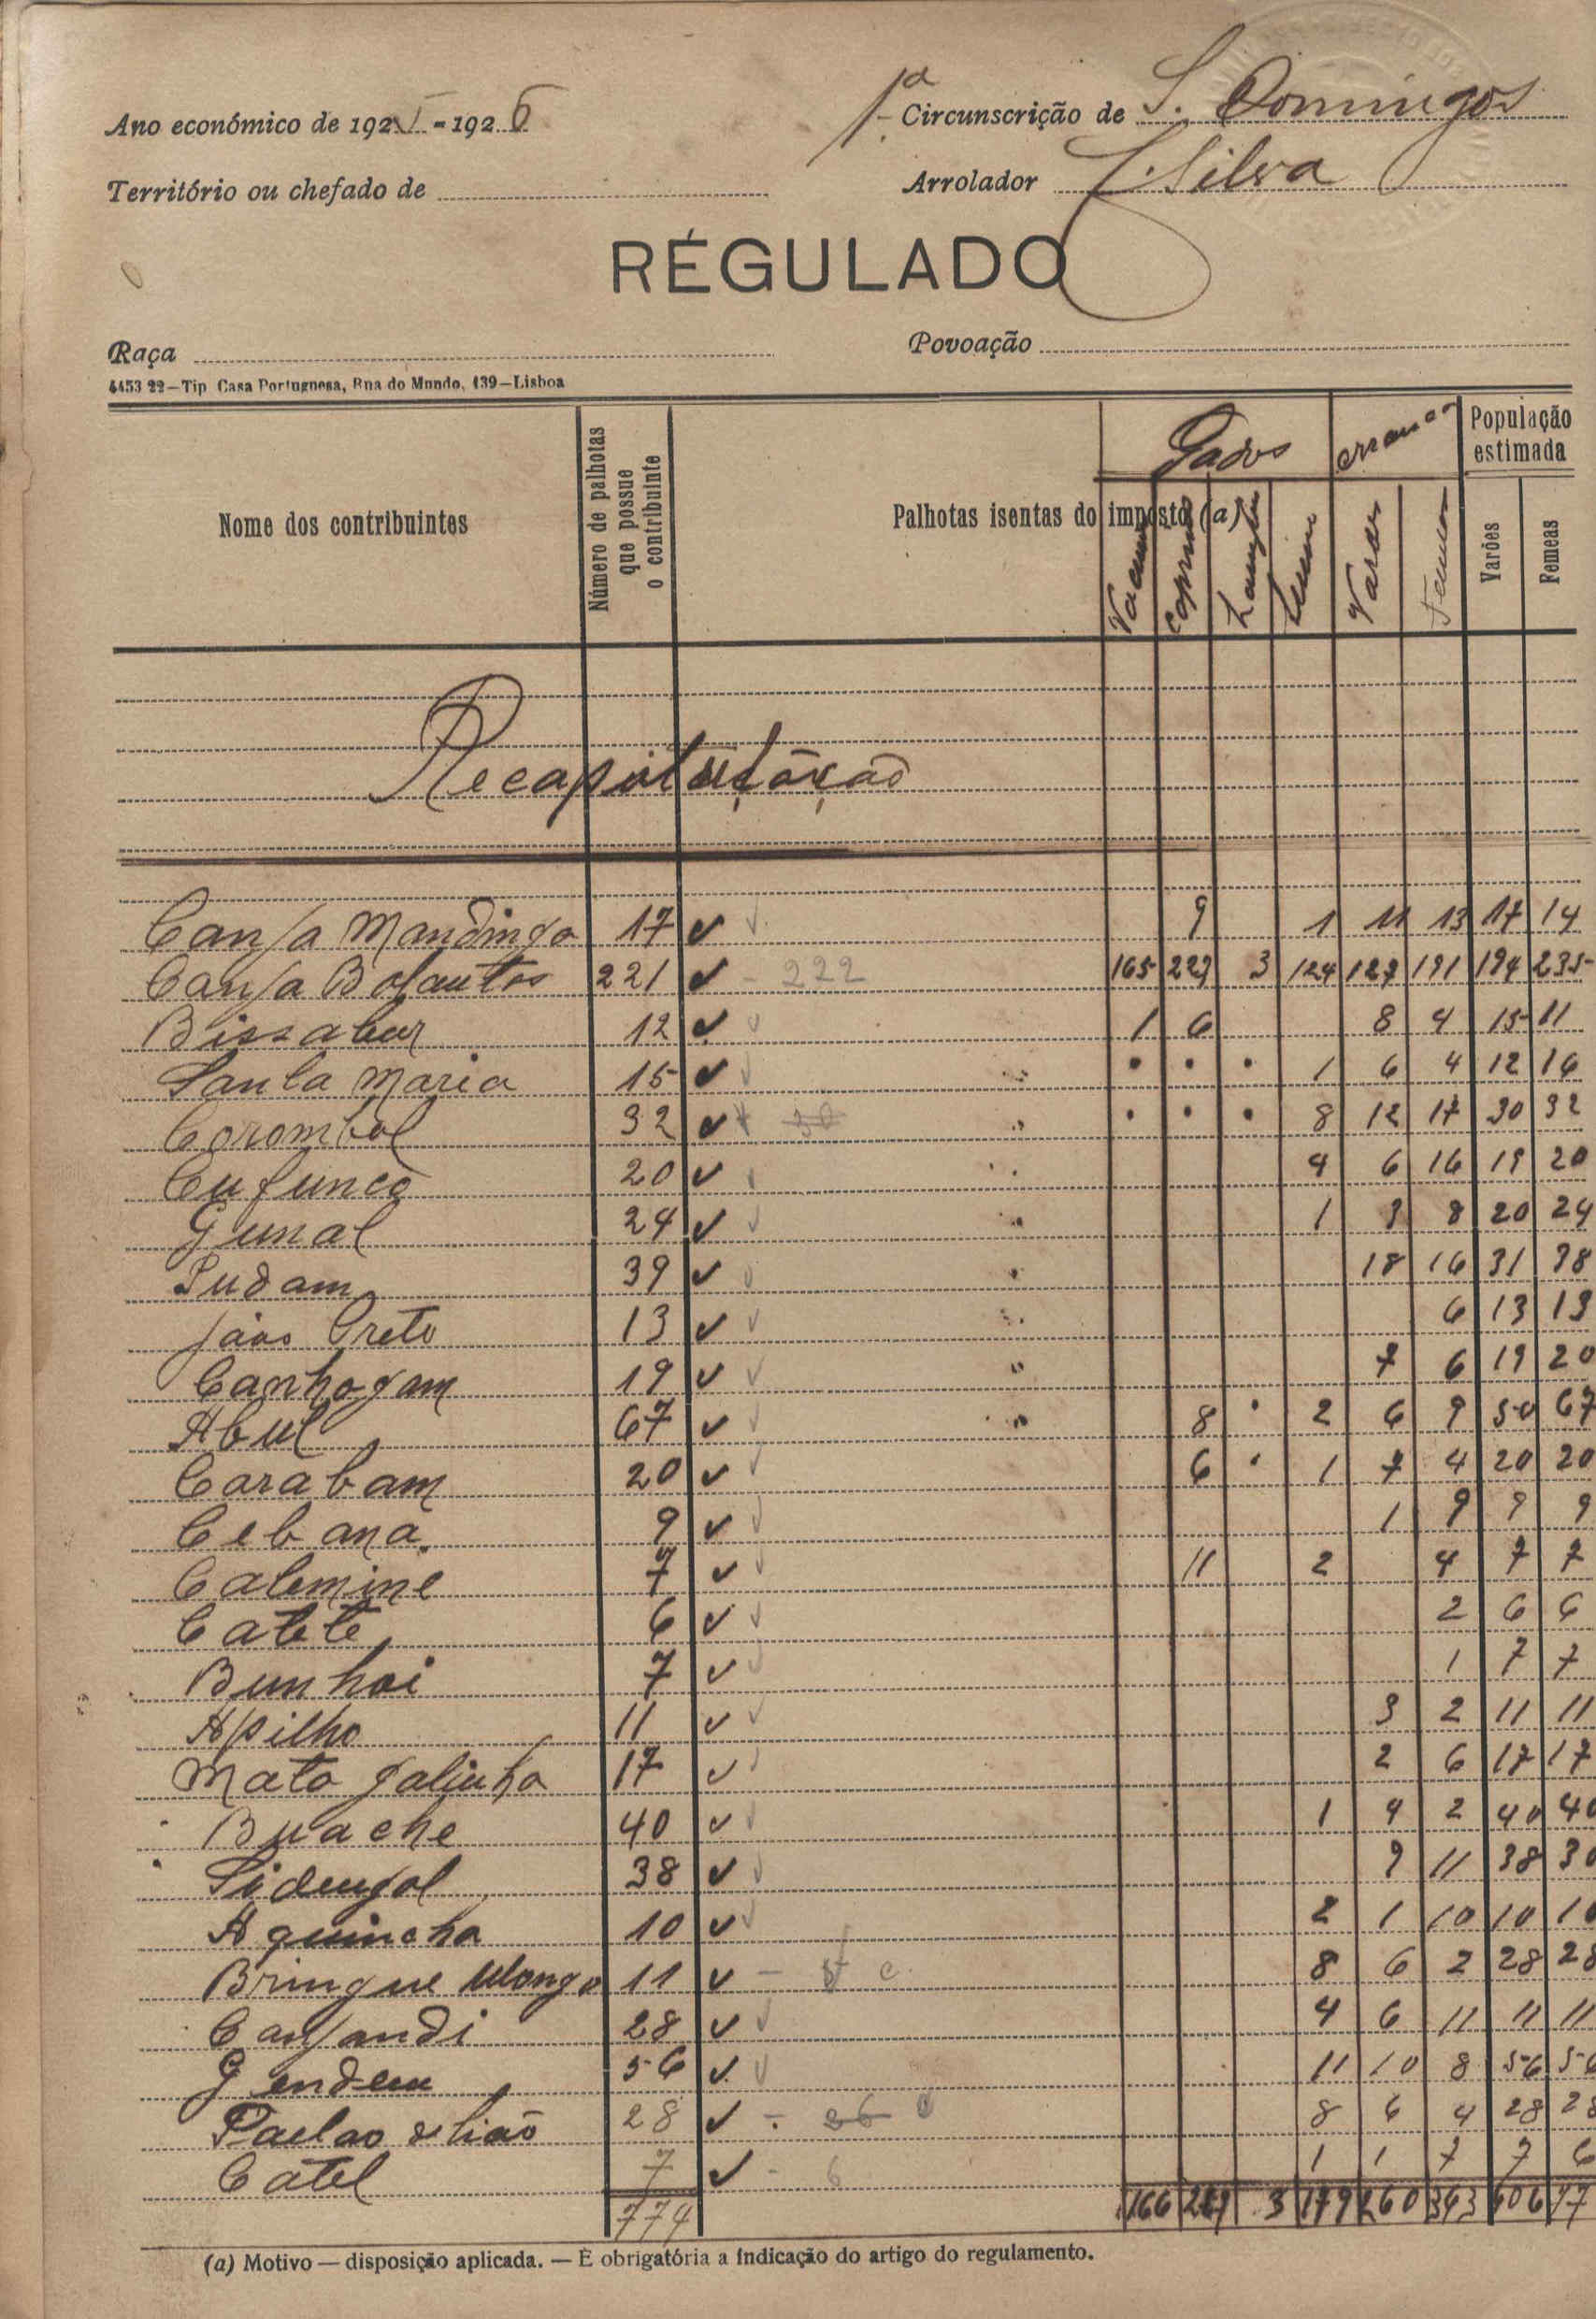 Ano económico de 1925-1926
1ª Circunscrição de S. Domingos
Território ou chefado de
Arrolador Silva
RÉGULADO
Raça
Povoação
4453 22—Tip Casa Portuguesa, Rua do Mundo, 139—Lisboa
Nome dos contribuintes
Número de palhotas que possue o contribuinte
Palhotas isentas do imposto (a)
Gados
População estimada
Vacum Caprino Varões Femeas Varões Femeas
Recapitulação
Canja Mandinga 17 9 1 11 13 17 14
Canja Bajautos 221 - 222 165 227 3 124 127 191 194 235
Bissabur 12 1 6 8 4 15 11
Santa Maria 15 1 6 4 12 16
Corombol 32 30 8 12 17 30 32
Cufunco 20 4 6 16 19 20
Gunal 24 1 9 8 20 24
Pudam 39 18 16 31 38
João Preto 13 6 13 13
Canhogam 19 7 6 19 20
Abul 67 8 2 6 9 50 67
Carabam 20 6 1 7 4 20 20
Cebana 9 1 9 9 9
Calemine 7 11 2 4 7 7
Catete 6 2 6 6
Bunhoi 7 1 7 7
Apilho 11 3 2 11 11
Mato galinha 17 2 6 17 17
Buache 40 1 4 2 40 40
Sidengol 38 9 11 38 30
Aquincha 10 2 1 10 10 10
Bringue 11 8 6 2 28 28
Canjandi 28 4 6 11 11 11
Gendem 56 11 10 8 56 56
28 - 26 8 6 4 28 28
Catel 7 - 6 1 1 7 7 6
774 166 3 179 260 343
(a) Motivo — disposição aplicada. — É obrigatória a indicação do artigo do regulamento.